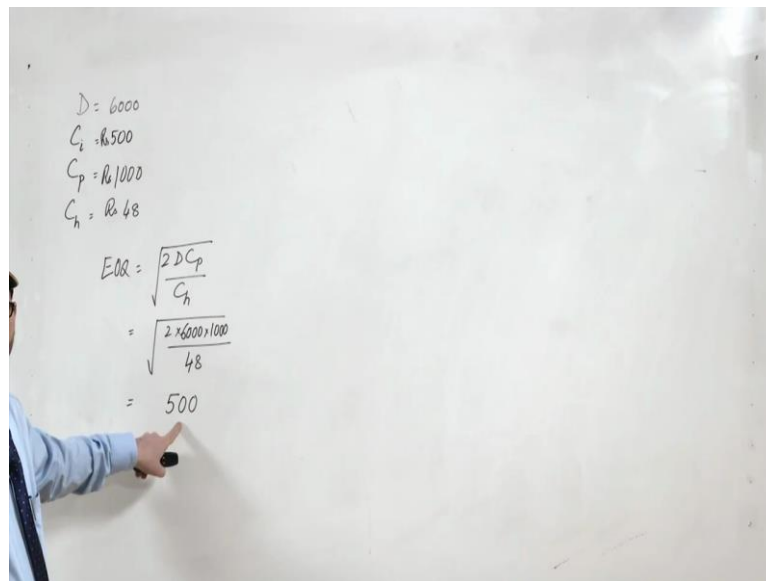 D = 6000
Ci = Rs 500
Cp = Rs 1000
Ch = Rs 48
EOQ = √(2DCp / Ch)
= √(2×6000×1000 / 48)
= 500